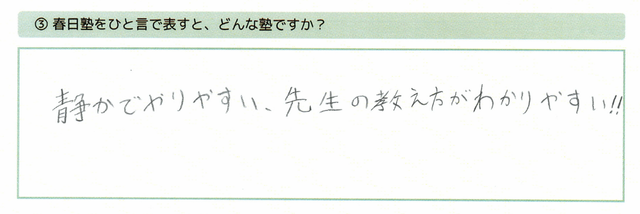 ③ 春日塾をひと言で表すと、どんな塾ですか？
静かでやりやすい、先生の教え方がわかりやすい!!